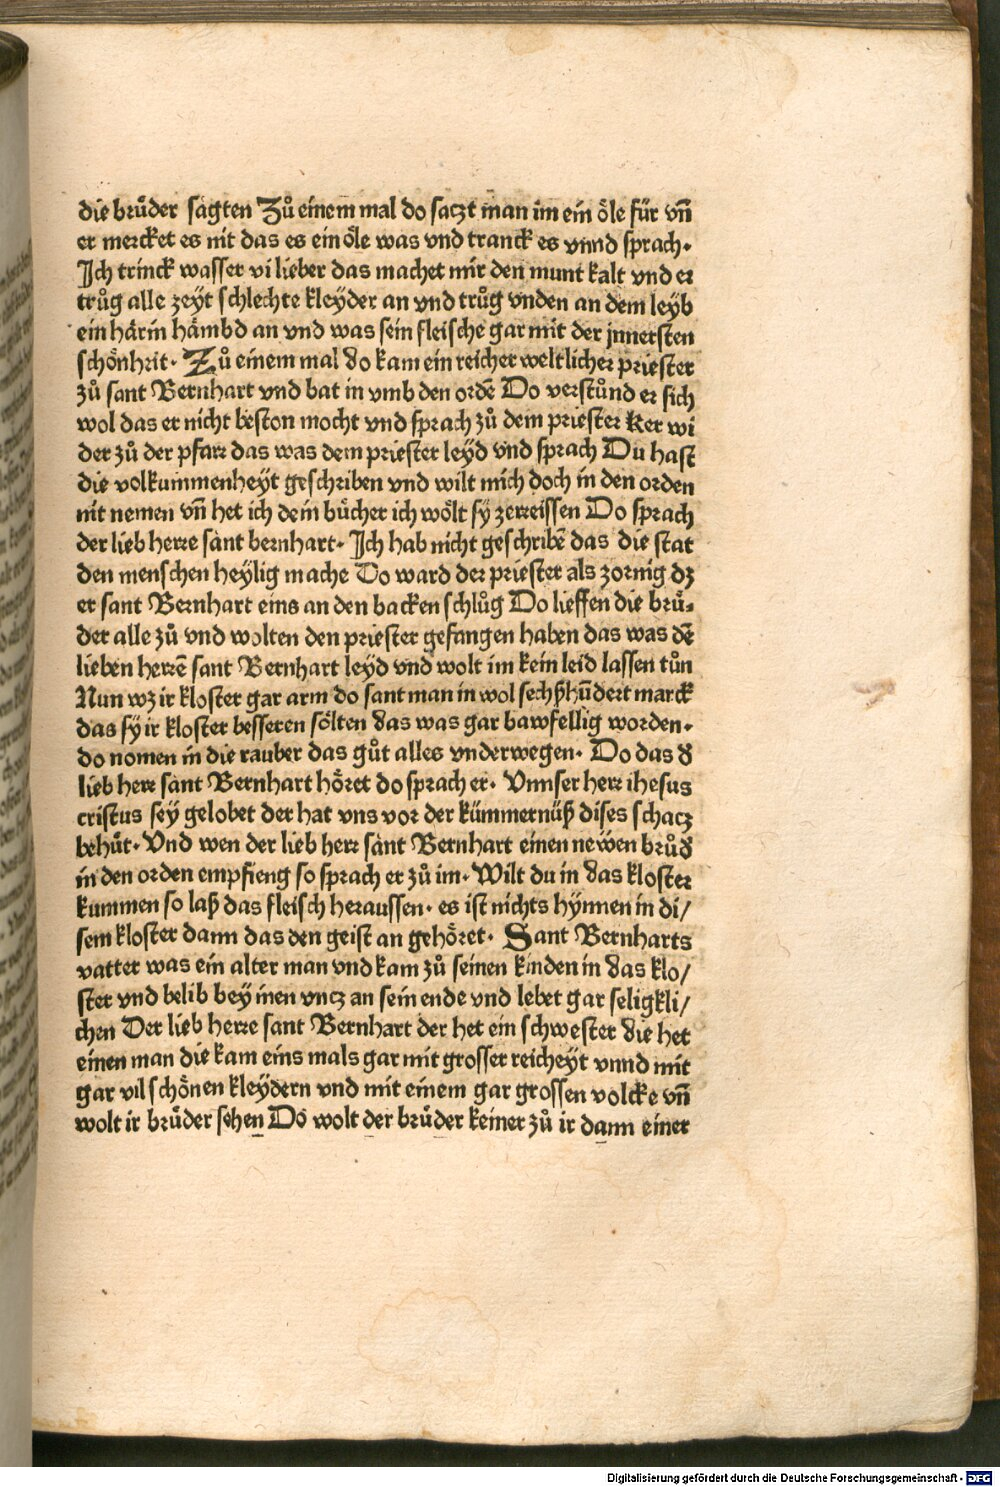 die bruͤder sagten Zuͦ einem mal do saczt man im ein oͤle fuͤr vñ
er mercket es nit das es ein oͤle was vnd tranck es vnnd sprach·
Ich trinck wasser vi lieber das machet mir den munt kalt vnd er
truͦg alle zeÿt schlechte kleÿder an vnd truͦg vnden an dem leÿb
ein haͤrin haͤmbd an vnd was sein fleische gar mit der jnnersten
schoͤnhrit· Zuͦ einem mal do kam ein reicher weltlicher priester
zuͦ sant Bernhart vnd bat in vmb den ordē Do verstuͦnd er sich
wol das er nicht beston mocht vnd sprach zuͦ dem priester Ker wi
der zuͦ der pfarr das was dem priester leÿd vnd sprach Du hast
die volkummenheÿt geschriben vnd wilt mich doch in den orden
nit nemen vñ het ich dein buͤcher ich woͤlt sÿ zerreissen Do sprach
der lieb herre sant bernhart· Ich hab nicht geschribē das die stat
den menschen heÿlig mache Do ward der priester als zornig dz
er sant Bernhart eins an den backen schluͦg Do lieffen die bruͤ⸗
der alle zuͦ vnd wolten den priester gefangen haben das was dē
lieben herrē sant Bernhart leÿd vnd wolt im kein leid lassen tuͦn
Nun wz ir kloster gar arm do sant man in wol sechßhūdert marck
das sÿ ir kloster besseren soͤlten das was gar bawfellig worden·
do nomen in die rauber das guͦt alles vnderwegen· Do das d
lieb herr sant Bernhart hoͤret do sprach er· Vnnser herr ihesus
cristus seÿ gelobet der hat vns vor der kuͤmmernuͤß dises schacz
behuͤt· Vnd wen der lieb herr sant Bernhart einen newen bruͦd
in den orden empfieng so sprach er zuͦ im· Wilt du in das kloster
kummen so laß das fleisch heraussen· es ist nichts hÿnnen in di/
sem kloster dann das den geist an gehoͤret· Sant Bernharts
vatter was ein alter man vnd kam zuͦ seinen kinden in das klo/
ster vnd belib beÿ inen vncz an sein ende vnd lebet gar seligkli/
chen Der lieb herre sant Bernhart der het ein schwester die het
einen man die kam eins mals gar mit grosser reicheÿt vnnd mit
gar vil schoͤnen kleÿdern vnd mit einem gar grossen volcke vñ
wolt ir bruͤder sehen Do wolt der bruͤder keiner zuͦ ir dann einer
Digitalisierung gefördert durch die Deutsche Forschungsgemeinschaft · DFG